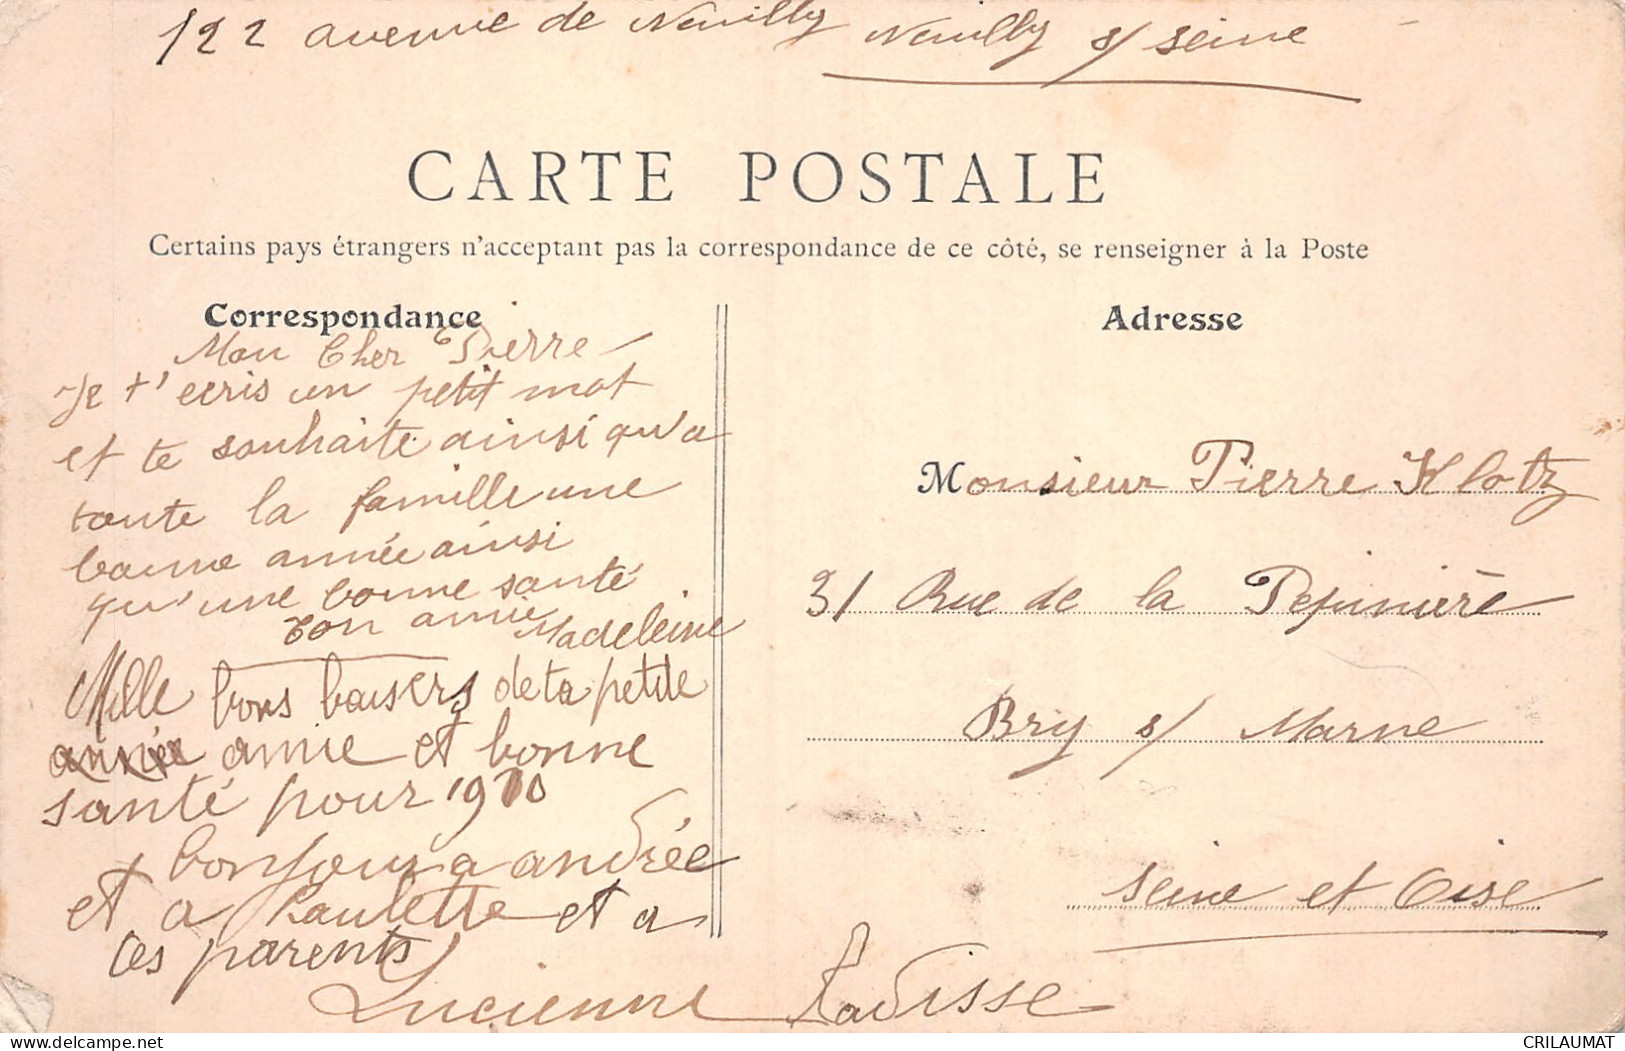 122 avenue de Neuilly Neuilly s/ seine
CARTE POSTALE
Certains pays étrangers n'acceptant pas la correspondance de ce côté, se renseigner à la Poste
Correspondance
Mon Cher Pierre
Je t'ecris un petit mot
et te souhaite ainsi qu'a
toute la famille une
bonne année ainsi
qu'une bonne santé
Ton amie Madeleine
Mille bons baisers de ta petite
année amie et bonne
santé pour 1910
bonjour a andrée
et a Paulette et a
tes parents
Lucienne
Adresse
Monsieur Pierre Klotz
31 Rue de la Pepinière
Bry s/ Marne
Seine et Oise
CRILAUMAT